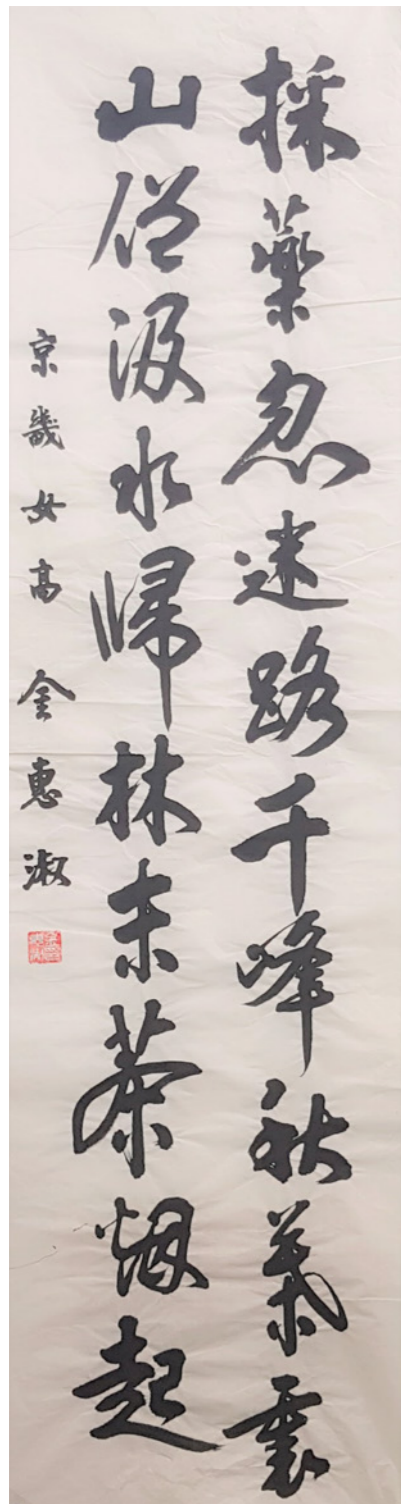 採藥忽迷路千峰秋葉裏
山僧汲水歸林末茶烟起
京畿女高 金惠淑